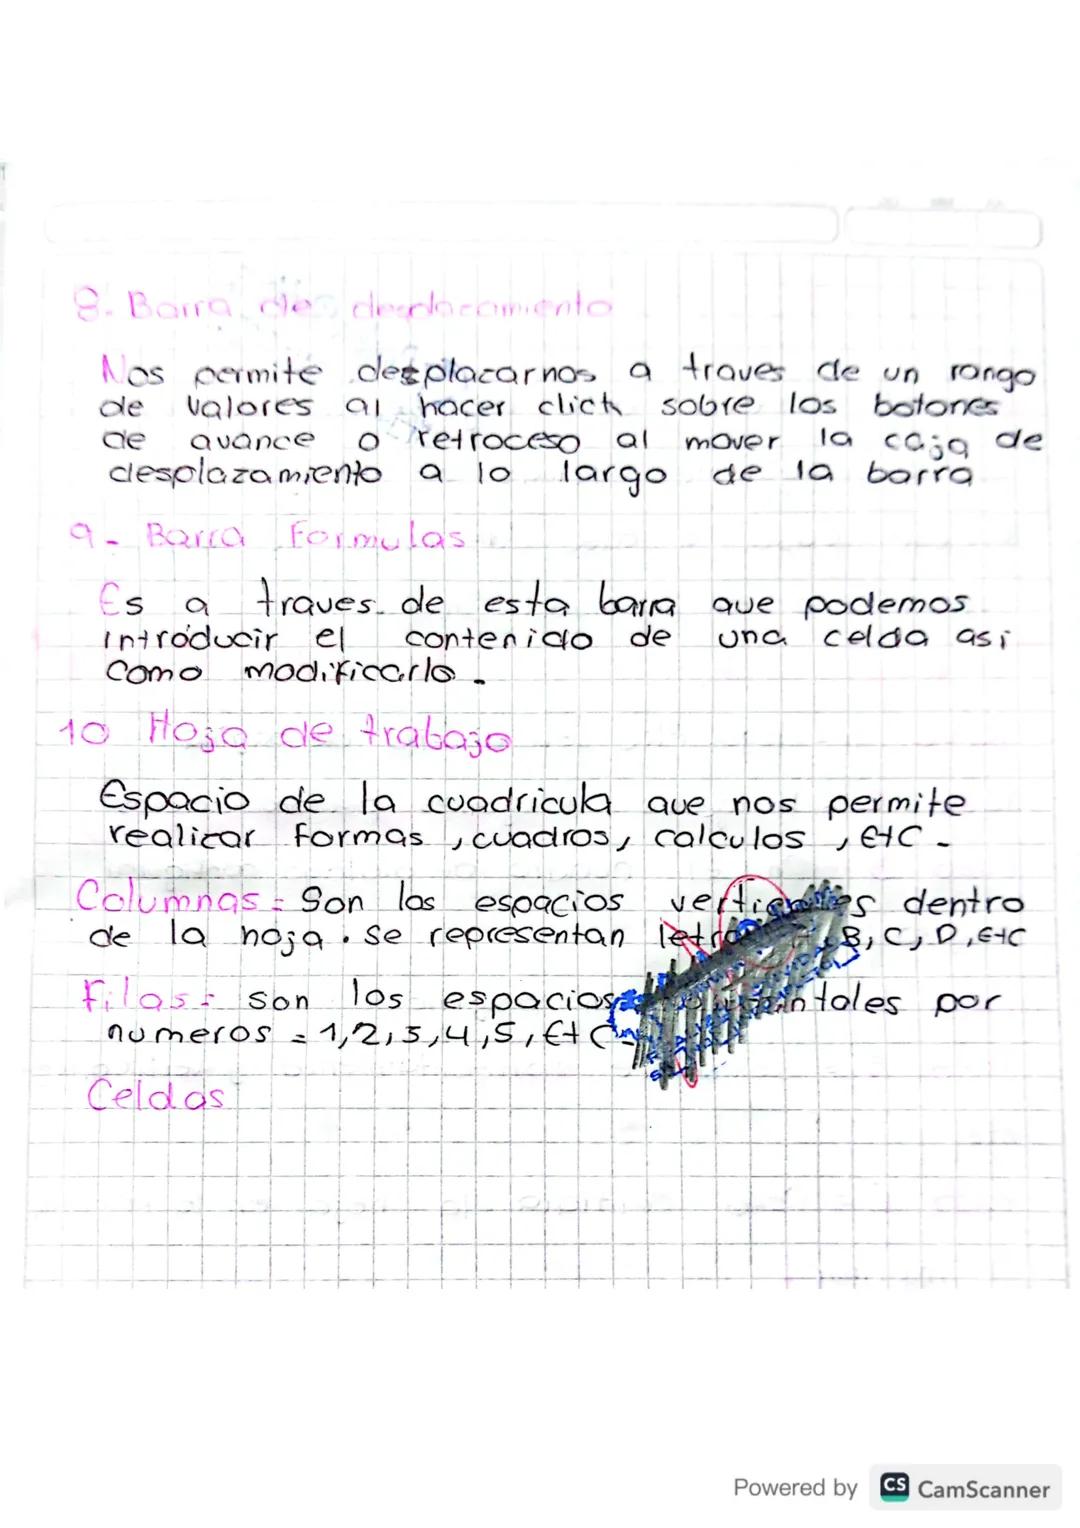 8. Barra de desplacamiento
Nos permite desplazarnos a traves de un rango
de valores al hacer click sobre los botones
de avance o retroceso al mover la caja de
desplazamiento a lo largo de la barra
9- Barra Formulas
Es a traves de esta barra que podemos
introducir el contenido de una celda asi
como modificarlo.
10 Hoja de trabajo
Espacio de la cuadricula que nos permite
realizar formas, cuadros, calculos, Etc.
Columnas: Son los espacios verticales dentro
de la hoja. se representan B, C, D, Etc
Filas: son los espacios por
numeros = 1,2,3,4,5, Etc
Celdas
Powered by CS CamScanner